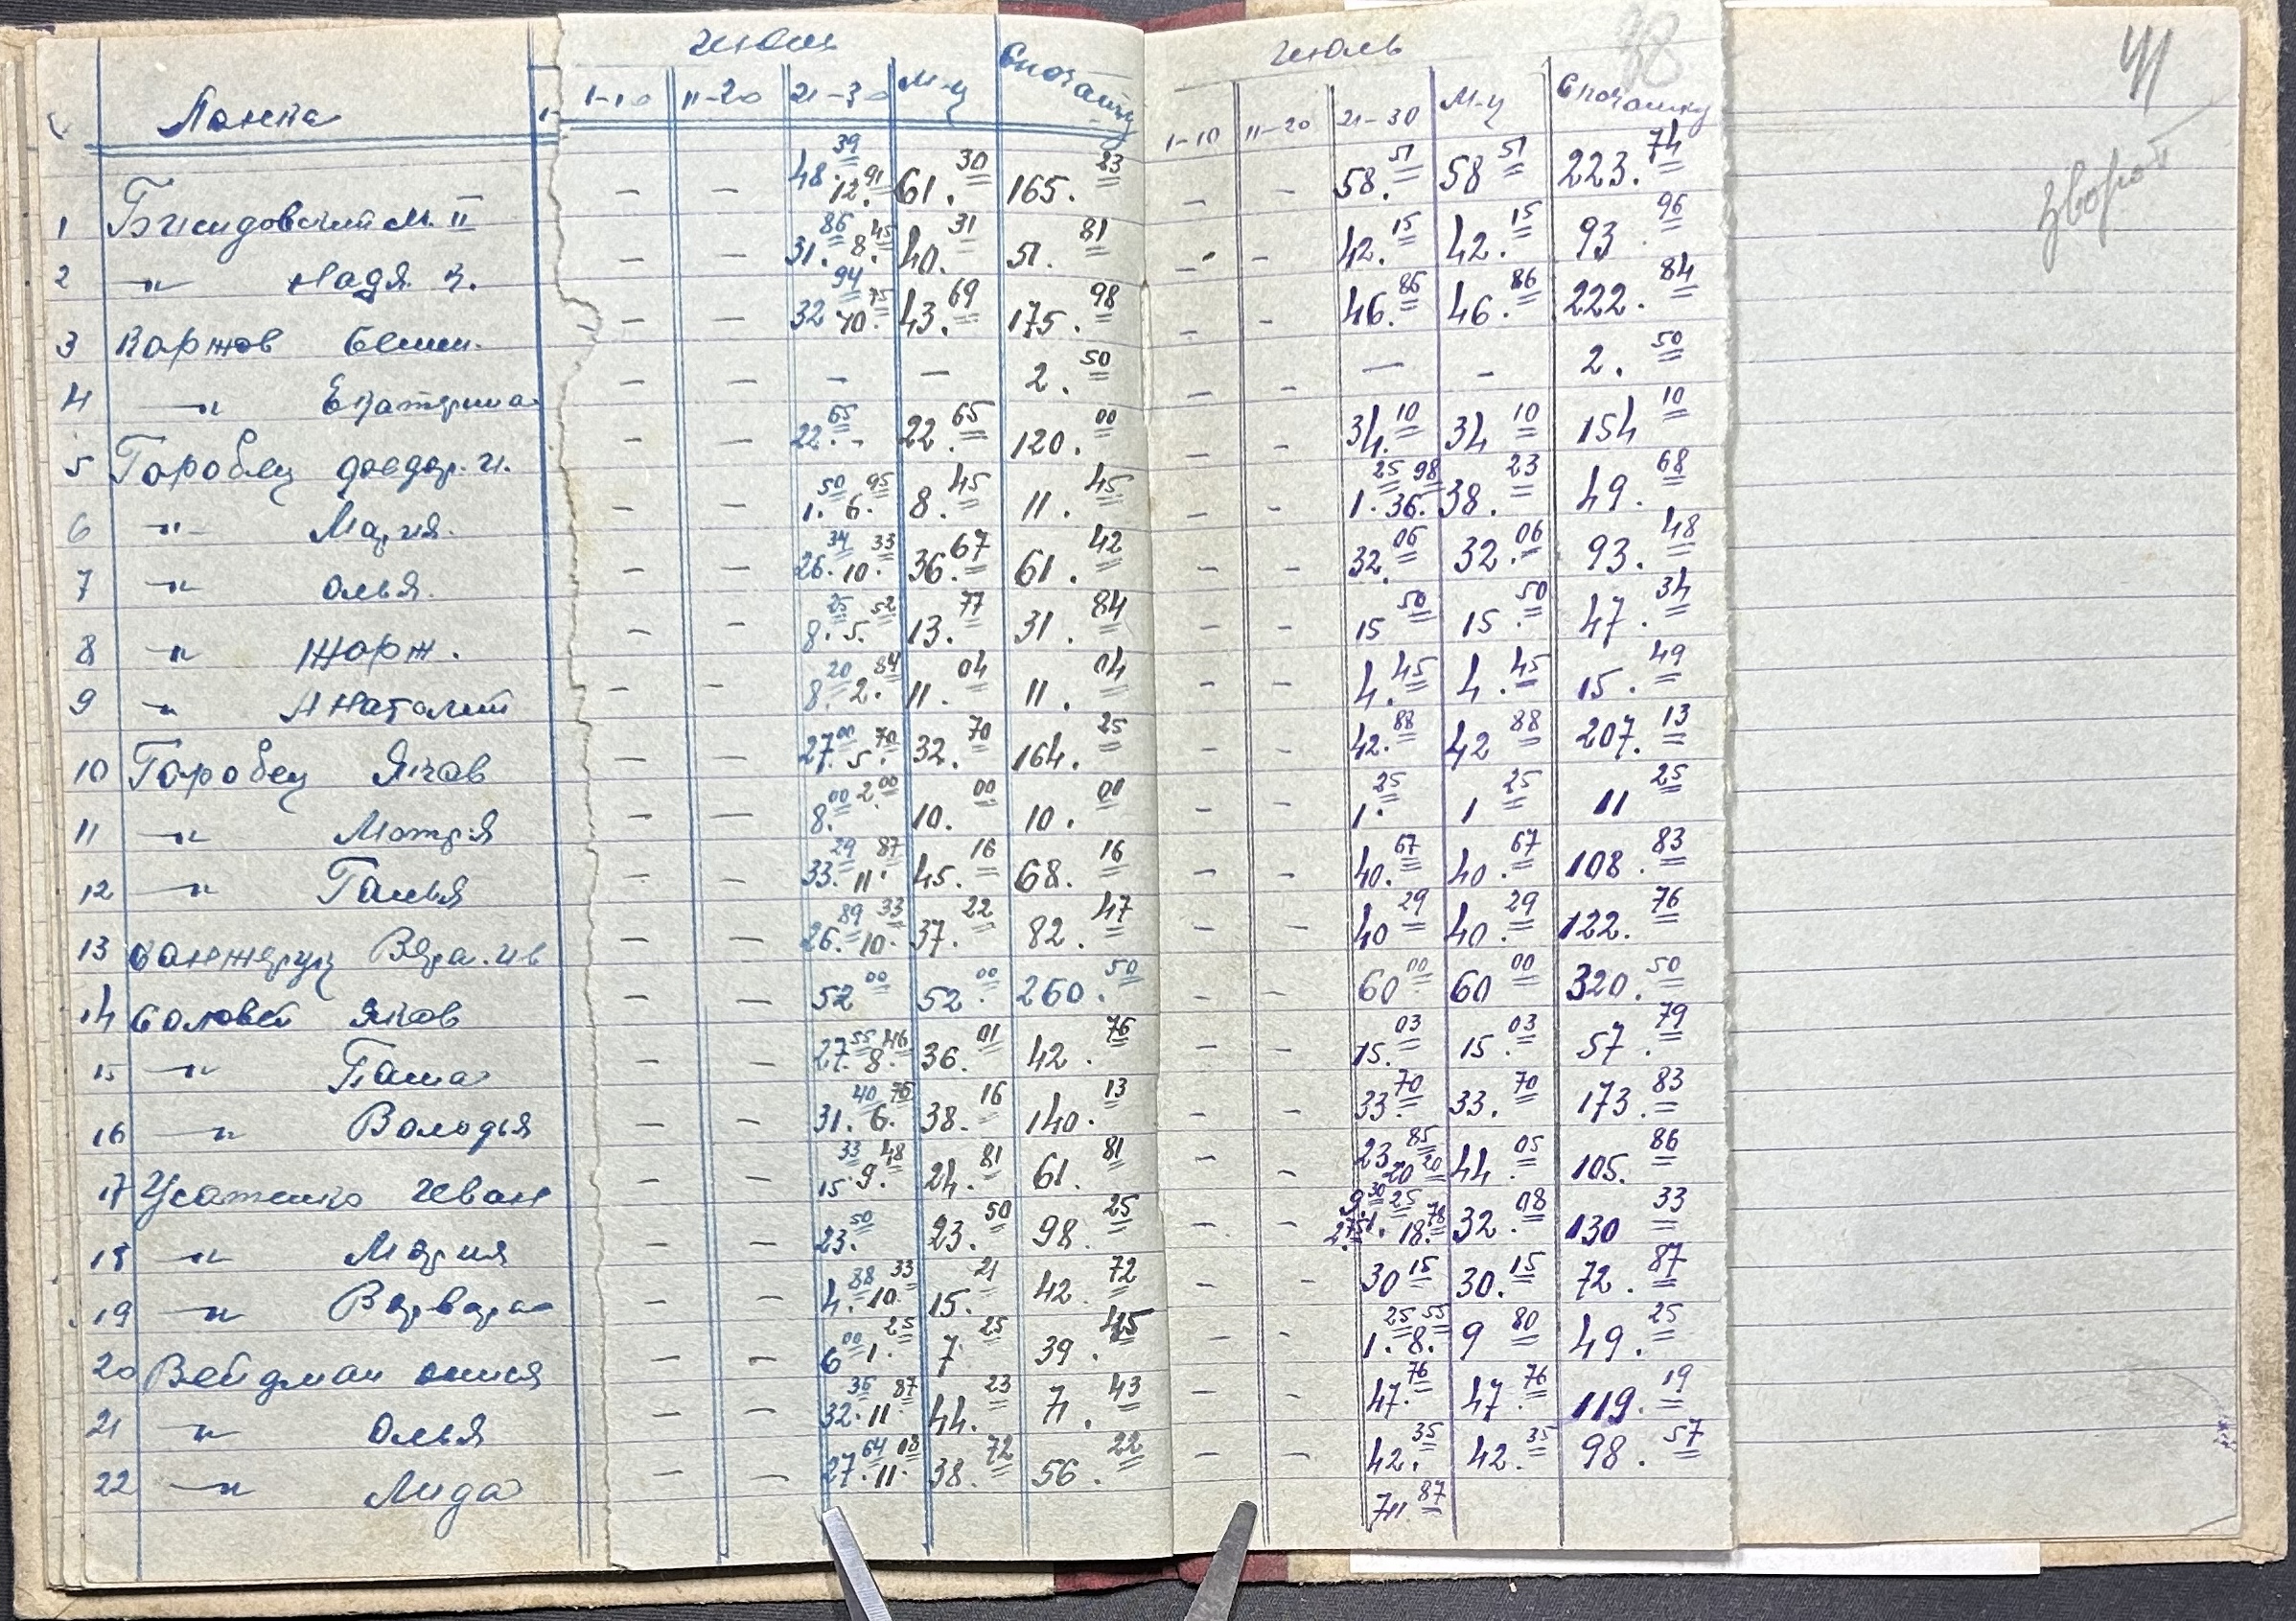 Июнь Июль 41
зворот
Ланка 1-10 11-20 21-30 М-ц Спочатку 1-10 11-20 21-30 М-ц Спочатку
1 М. II — — 48.39 12.91 61.30 165.23 — — 58.51 58 51 223.74
2 —"— Надя — — 31.86 8.45 40.31 51.81 — — 42.15 42.15 93.96
3 — — 32 94 10.75 43.69 175.98 — — 46.86 46.86 222.84
4 —"— Екатерина — — — — 2.50 — — — — 2.50
5 Горобец — — 22.65 22.65 120.00 — 34.10 34 10 154 10
6 —"— Мария. — — 1.50 6.95 8.45 11.45 — — 1.25 36.98 38.23 49.68
7 —"— Олья. — — 26.34 10.33 36.67 61.42 — — 32.06 32.06 93.48
8 —"— Жорж. — — 8.25 5.52 13.77 31.84 — — 15 50 15.50 47.34
9 —"— Анатолий — — 8.20 2.84 11.04 11.04 — — 4.45 4.45 15.49
10 Горобец Яков — — 27.00 5.70 32.70 164.25 — — 42.88 42 88 207.13
11 —"— Мотря — — 8.00 2.00 10.00 10.00 — — 1.25 1 25 11 25
12 —"— Галья — — 33.29 11.87 45.16 68.16 — — 40.67 40.67 108.83
13 — — 26.89 10.33 37.22 82.47 — — 40 29 40.29 122.76
14 Соловей Яков — — 52 00 52.00 260.50 — — 60 00 60 00 320.50
15 —"— Паша — — 27.55 8.46 36.01 42.76 — — 15.03 15.03 57.79
16 —"— Володья — — 31.40 6.76 38.16 140.13 — — 33.70 33.70 173.83
17 Усатенко Иван — — 15.33 9.48 24.81 61.81 — — 23 85 20 20 44.05 105.86
18 —"— Мария — — 23.50 23.50 98.25 — — 9.30 2.75 1.25 18.78 32.08 130 33
19 —"— Варвара — — 4.88 10.33 15.21 42.72 — — 30 15 30.15 72.87
20 Вейдман — — 6 00 1.25 7.25 39.45 — — 1.25 8.55 9 80 49.25
21 —"— Олья — — 32.36 11.87 44.23 71.43 — — 47.76 47.76 119.19
22 —"— Лида — — 27.64 11.08 38.72 56.22 — — 42.35 42.35 98.57
711 87